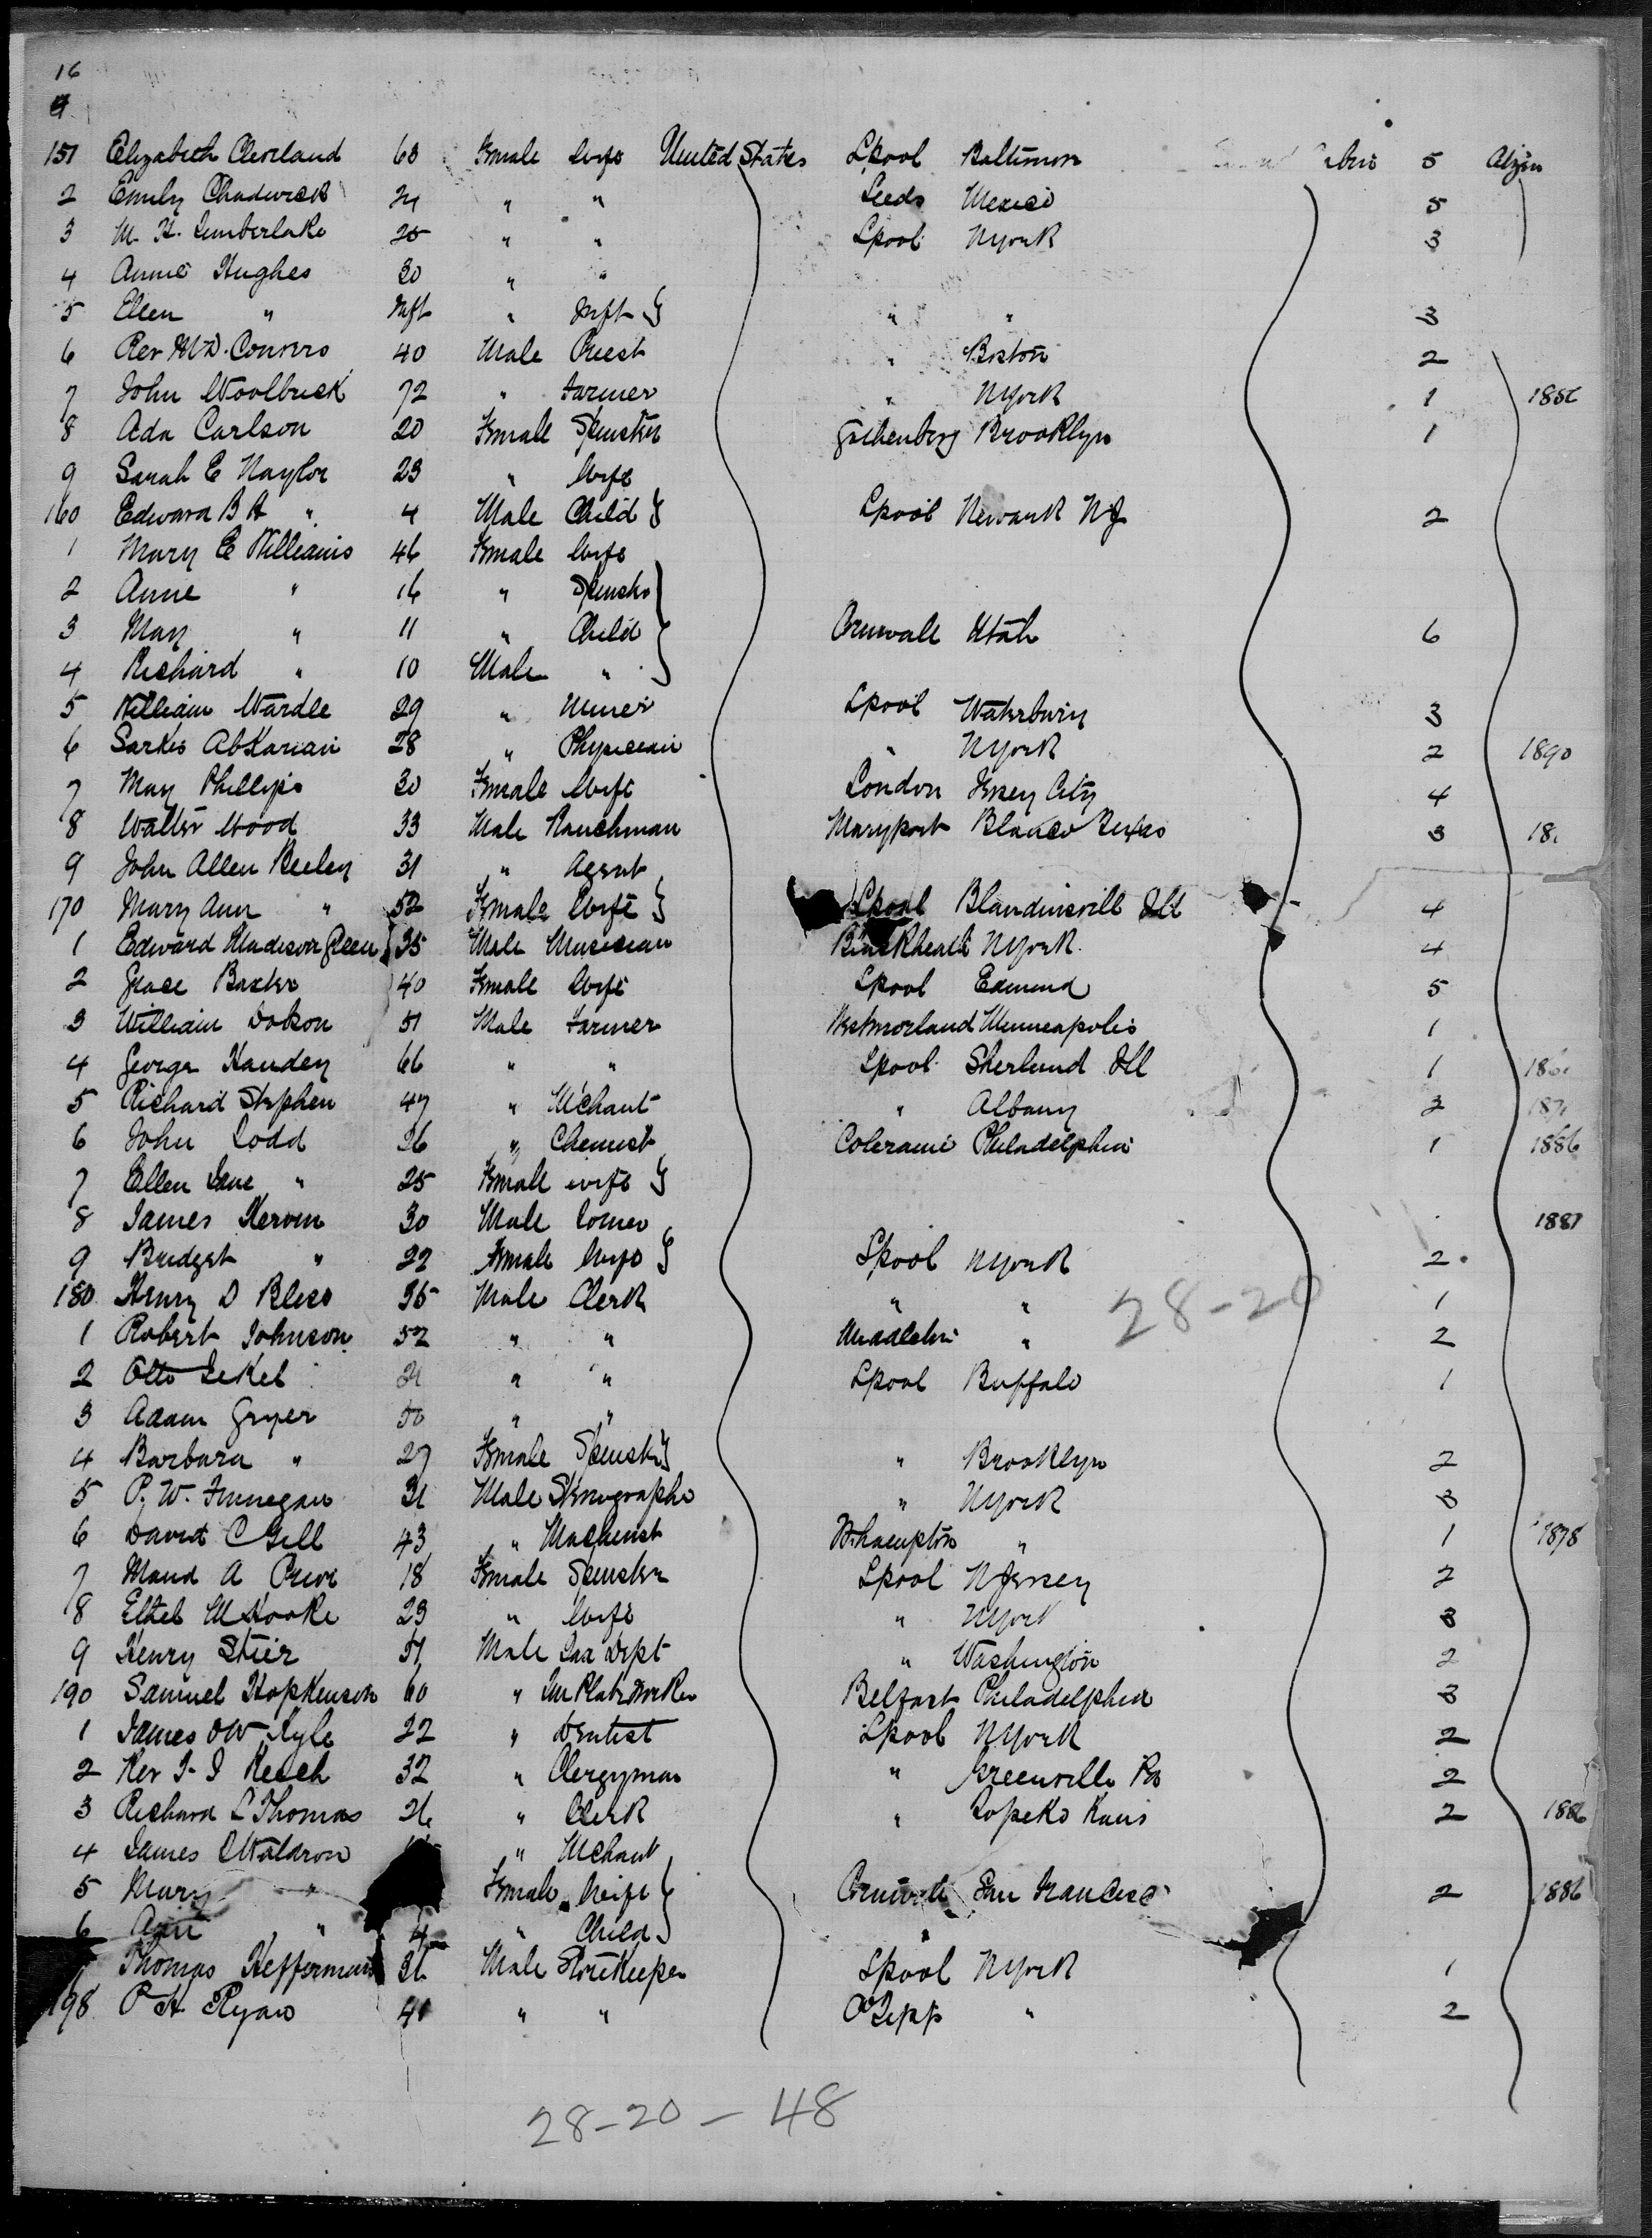 16
9
151 Elizabeth Cleveland 63 Female Wife United States Lpool Baltimore 5
2 Emily Chadwick 24 " " Leeds Mexico 5
3 M. H. Timberlake 25 " " Lpool NYork 3
4 Annie Hughes 30 " "
5 Ellen " Inft " Inft } " " 3
6 Rev M.D. Connors 40 Male Priest " Boston 2
7 John Woolbrick 72 " Farmer " NYork 1
8 Ada Carlson 20 Female Spinster Gothenberg Brooklyn 1
9 Sarah E Naylor 23 " Wife
160 Edward B A " 4 Male Child } Lpool Newark NJ 2
1 Mary E Williams 46 Female Wife
2 Annie " 16 " Spinster
3 May " 11 " Child } Cornwall Utah 6
4 Richard " 10 Male "
5 William Wardle 29 " Miner Lpool Waterbury 3
6 Sarkis Abkarian 28 " Physician " NYork 2 1890
7 May Phillips 30 Female Wife London Jersey City 4
8 Walter Wood 33 Male Ranchman Maryport Blanco Texas 3
9 John Allen Beeley 31 " Agent
170 Mary Ann " 52 Female Wife } Lpool Blandinsvill Ill 4
1 Edward Madison Green 35 Male Musician Blackheath NYork 4
2 Grace Baxter 40 Female Wife Lpool Edmund 5
3 William Dobson 51 Male Farmer Westmorland Minneapolis 1
4 George Handey 66 " " Lpool Ill 1
5 Richard Stephen 47 " Mchant " Albany
6 John Todd 26 " Chemist Coleraine Philadelphia 1 1886
7 Ellen Jane " 25 Female wife }
8 James Kerwin 30 Male 1887
9 Bridget " 22 Female Wife } Lpool NYork 2
180 Henry D Bliss 35 Male Clerk " " 1
28-20
1 Robert Johnson 52 " " " 2
2 Otto 21 " " Lpool Buffalo 1
3 Adam Gryer 50 " "
4 Barbara " 27 Female Spinster } " Brooklyn 2
5 P. W. Finnegan 31 Male Stenographer " NYork 3
6 David C Gill 43 " Machinist W.hampton " 1 1878
7 Maud A Price 18 Female Spinster Lpool NJersey 2
8 Ethel M Hooke 23 " Wife " NYork 3
9 Henry Stier 51 Male Tax Dept " Washington 2
190 Samuel Hopkinson 60 " Tin Plate Worker Belfast Philadelphia 3
1 James OW Kyle 22 " Dentist Lpool NYork 2
2 Rev 32 " Clergyman " Greenville Pa 2
3 Richard L Thomas 26 " Clerk " Topeka Kans 2 1886
4 James Waldron " Mchant
5 Mary " Female Wife } Cornwall San Francisco 2 1886
6 " 4 " Child
Thomas Heffernan Male Storekeeper Lpool NYork 1
198 P H Ryan 40 " " " 2
28-20-48